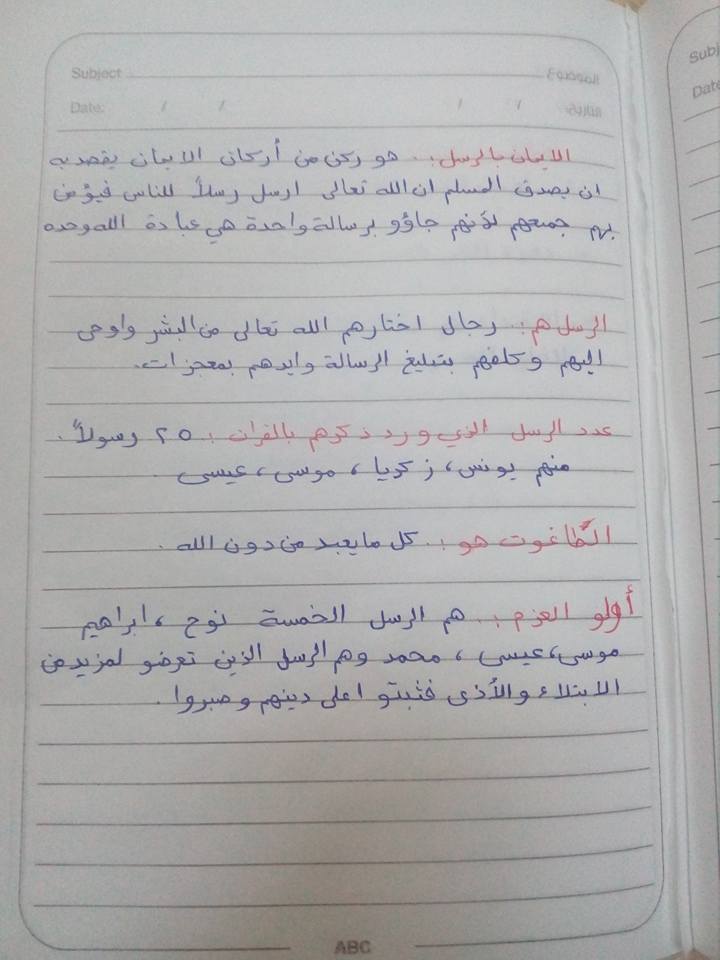 Subject الموضوع
Date: / / / / التاريخ:
الايمان بالرسل:. هو ركن من أركان الايمان يقصد به
ان يصدق المسلم ان الله تعالى ارسل رسلاً للناس فيؤمن
بهم جميعهم لأنهم جاؤو برسالة واحدة هي عبادة الله وحده
الرسل هم:. رجال اختارهم الله تعالى من البشر واوحى
اليهم وكلفهم بتبليغ الرسالة وايدهم بمعجزات.
عدد الرسل الذي ورد ذكرهم بالقران:. ٢٥ رسولاً.
منهم يونس، زكريا، موسى، عيسى.
الطاغوت هو:. كل ما يعبد من دون الله.
أولو العزم:. هم الرسل الخمسة نوح، ابراهيم
موسى، عيسى، محمد وهم الرسل الذين تعرضو لمزيد من
الابتلاء والأذى فثبتو اعلى دينهم وصبروا.
ABC
Subj
Date